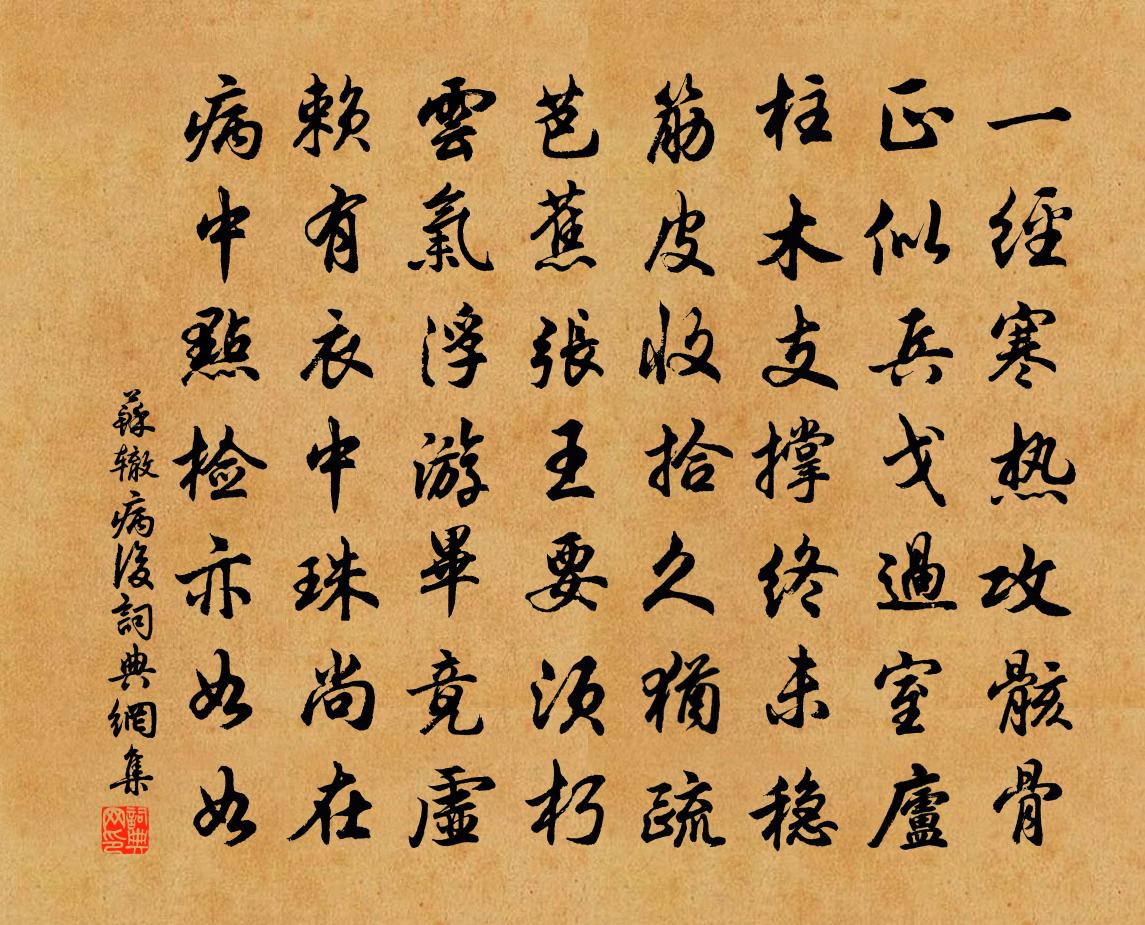 一經寒热攻骸骨
正似兵戈過室廬
柱木支撑终未穏
筋皮收拾久猶疏
芭蕉張王要须朽
雲氣浮游畢竟虛
赖有衣中珠尚在
病中點检亦如如
蘇辙病後詞典網集
詞典网印